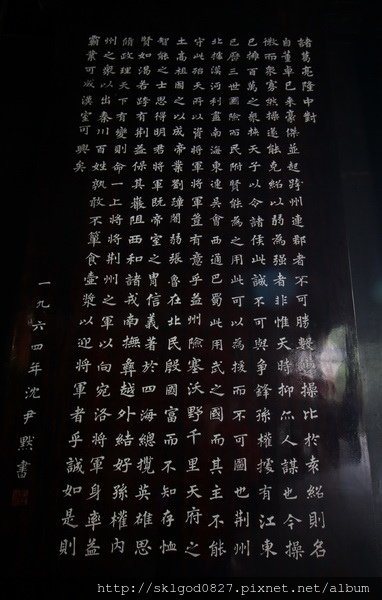 諸葛亮隆中對
自董卓已來豪傑並起跨州連郡者不可勝數曹操比於袁紹則名
微而衆寡然操遂能克紹以弱為強者非惟天時抑亦人謀也今操
已擁百萬之衆挾天子以令諸侯此誠不可與爭鋒孫權據有江東
已歷三世國險而民附賢能為之用此可以為援而不可圖也荊州
北據漢沔利盡南海東連吳會西通巴蜀此用武之國而其主不能
守此殆天所以資將軍將軍豈有意乎益州險塞沃野千里天府之
土高祖因之以成帝業劉璋闇弱張魯在北民殷國富而不知存恤
智能之士思得明君將軍既帝室之胄信義著於四海總攬英雄思
賢如渴若跨有荊益保其巖阻西和諸戎南撫彝越外結好孫權內
脩政理天下有變則命一上將將荊州之軍以向宛洛將軍身率益
州之衆以出秦川百姓孰敢不簞食壺漿以迎將軍者乎誠如是則
霸業可成漢室可興矣
一九六四年沈尹默書
http://sklgod0827.pixnet.net/album